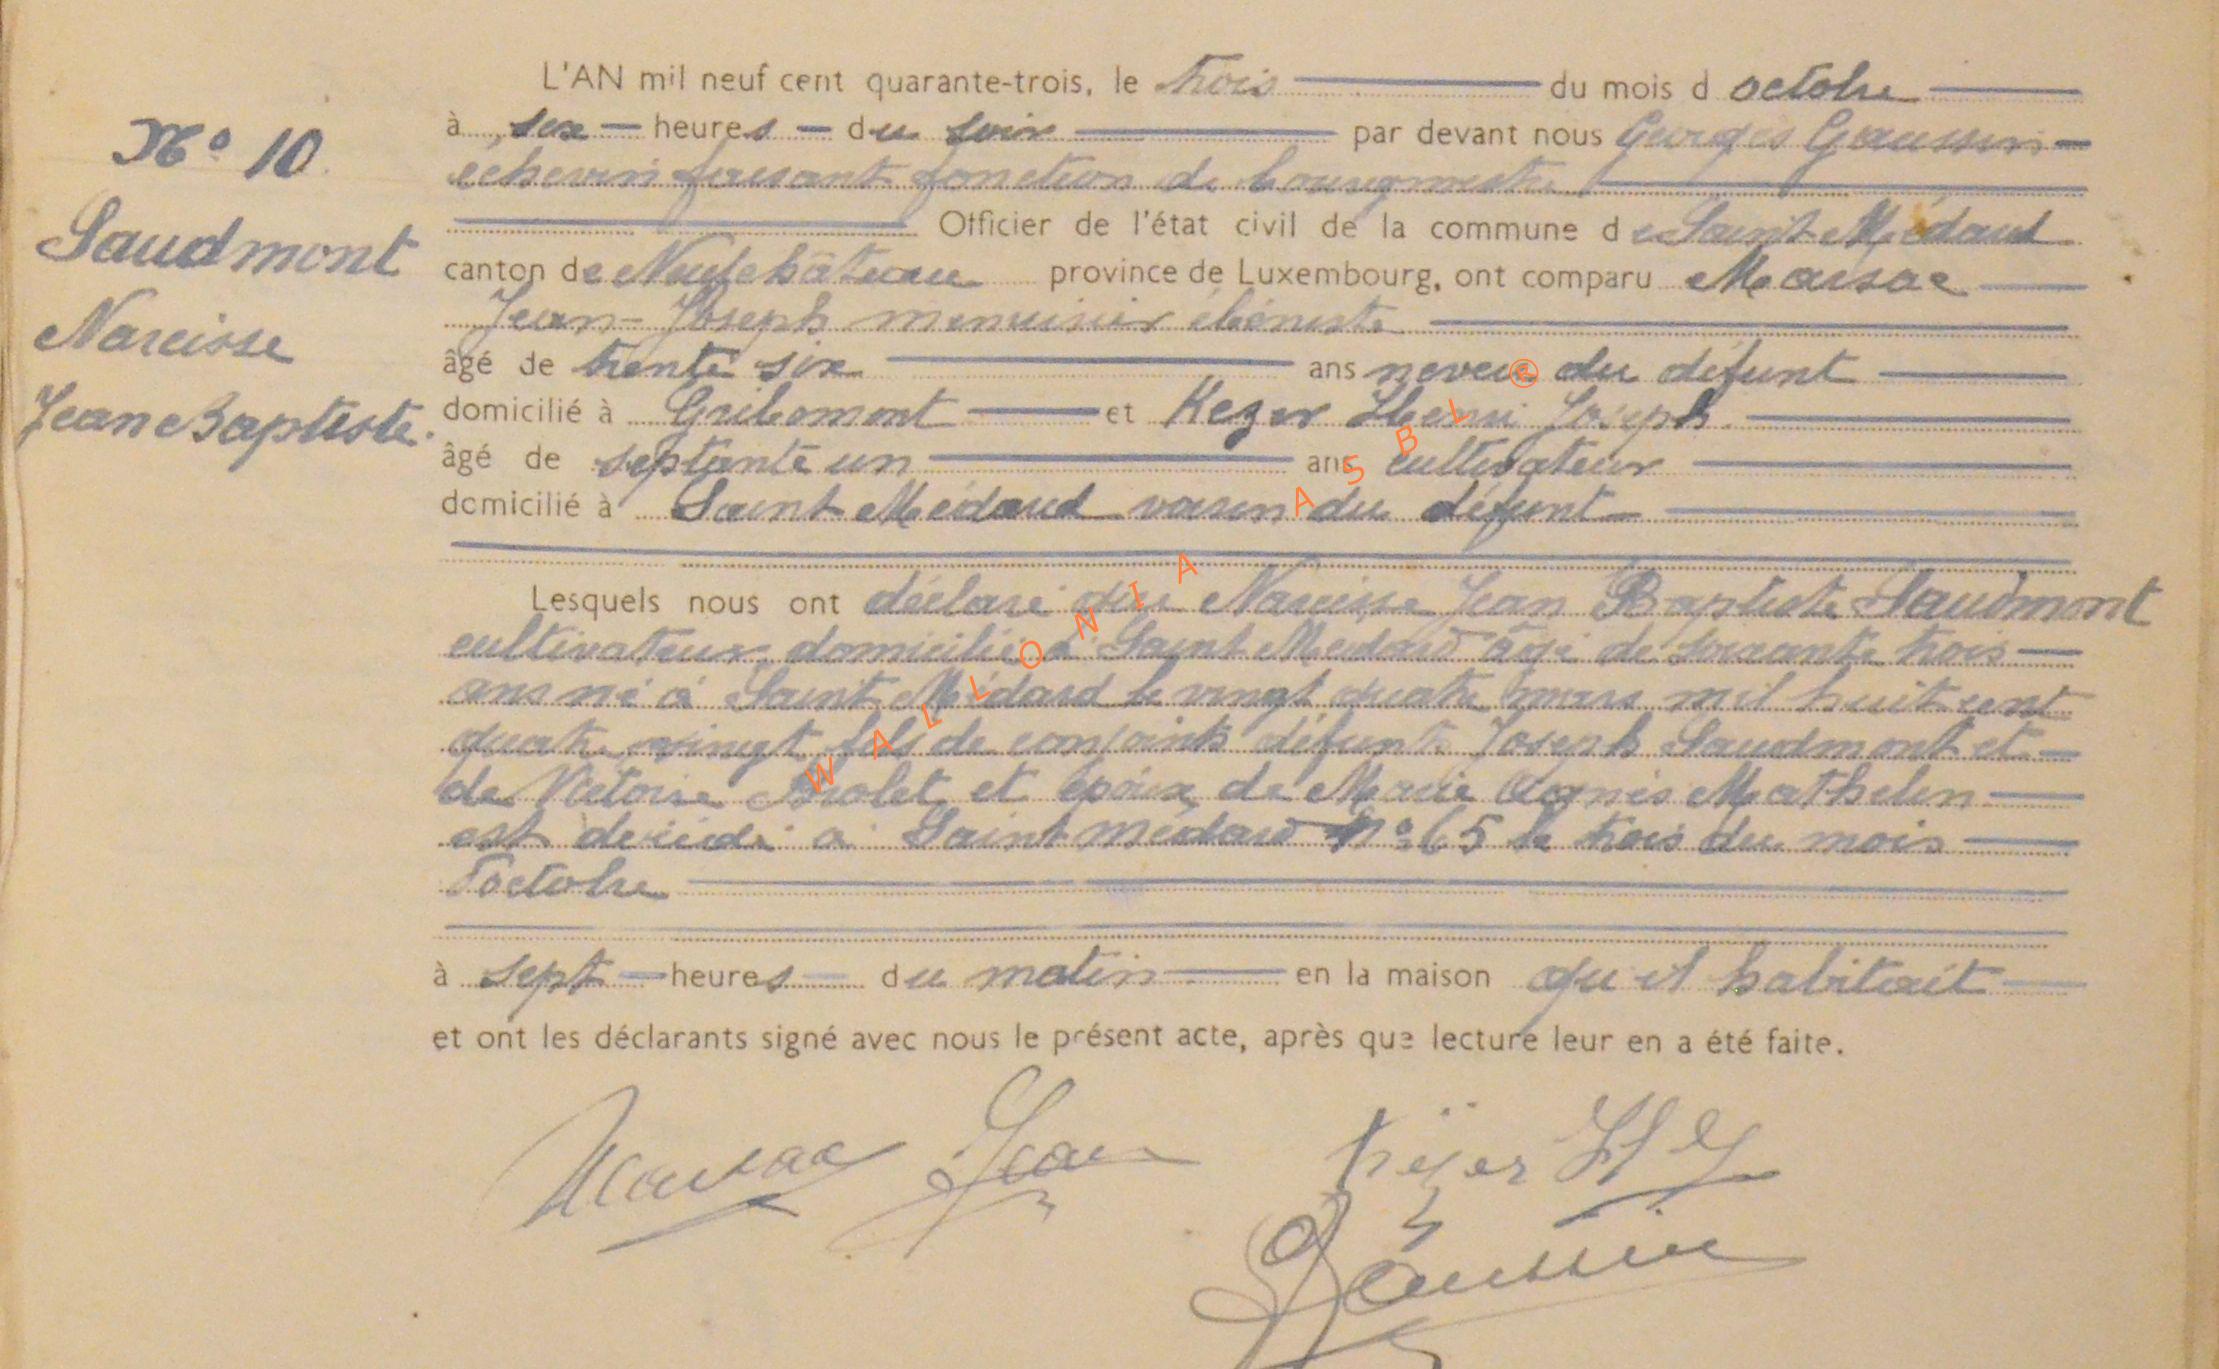 N° 10
Saudmont
Narcisse
Jean Baptiste.
L'AN mil neuf cent quarante-trois, le trois du mois d octobre
à six heures du soir par devant nous Georges Gaussin
échevin faisant fonction de bourgmestre
Officier de l'état civil de la commune de Saint Médard
canton de Neufchâteau province de Luxembourg, ont comparu Marsac
Jean-Joseph menuisier ébéniste
âgé de trente six ans neveu du défunt
domicilié à Gribomont et Kezer Henri Joseph
âgé de septante un ans cultivateur
domicilié à Saint Médard voisin du défunt
Lesquels nous ont déclaré que Narcisse Jean Baptiste Saudmont
cultivateur domicilié à Saint Médard âgé de soixante trois
ans né à Saint Médard le vingt quatre mars mil huit cent
quatre vingt fils de conjoints défunts Joseph Saudmont et
de Victoire et époux de Marie Agnès Mathelin
est décédé à Saint Médard N° 65 le trois du mois
d'octobre
à sept heures du matin en la maison qu'il habitait
et ont les déclarants signé avec nous le présent acte, après que lecture leur en a été faite.
Marsac Jean
Kejer H J
Gaussin
WALLONIA ASBL ®